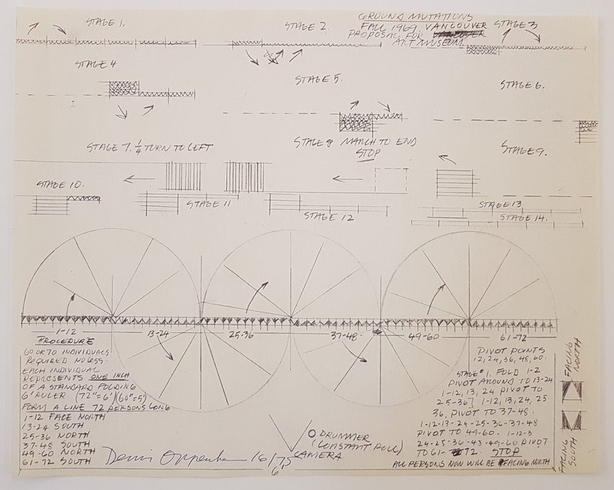 GROUND MUTATIONS
FALL 1969 VANCOUVER
PROPOSAL FOR
ART MUSEUM
STAGE 1.
STAGE 2.
STAGE 3
STAGE 4
STAGE 5.
STAGE 6.
STAGE 7. 1/4 TURN TO LEFT
STAGE 8 MARCH TO END
STOP
STAGE 9.
STAGE 10.
STAGE 11
STAGE 12
STAGE 13
STAGE 14.
1-12
13-24
25-36
37-48
49-60
61-72
PROCEDURE
60 OR 70 INDIVIDUALS
REQUIRED
EACH INDIVIDUAL
REPRESENTS ONE INCH
OF A STANDARD FOLDING
6' RULER (72"=6') (60"=5')
FORM A LINE 72 PERSONS LONG
1-12 FACE NORTH
13-24 SOUTH
25-36 NORTH
37-48 SOUTH
49-60 NORTH
61-72 SOUTH
Dennis Oppenheim
DRUMMER
(CONSTANT ROLL)
CAMERA
PIVOT POINTS
12, 24, 36, 48, 60
STAGE #1. FOLD 1-2
PIVOT AROUND TO 13-24
1-12, 13, 24 PIVOT TO
25-36 1-12, 13, 24, 25
36, PIVOT TO 37-48.
1-12-13-24-25-36-37-48
PIVOT TO 49-60.
PIVOT
TO 61-72. STOP
ALL PERSONS NOW WILL BE FACING NORTH
FACING
NORTH
FACING
SOUTH